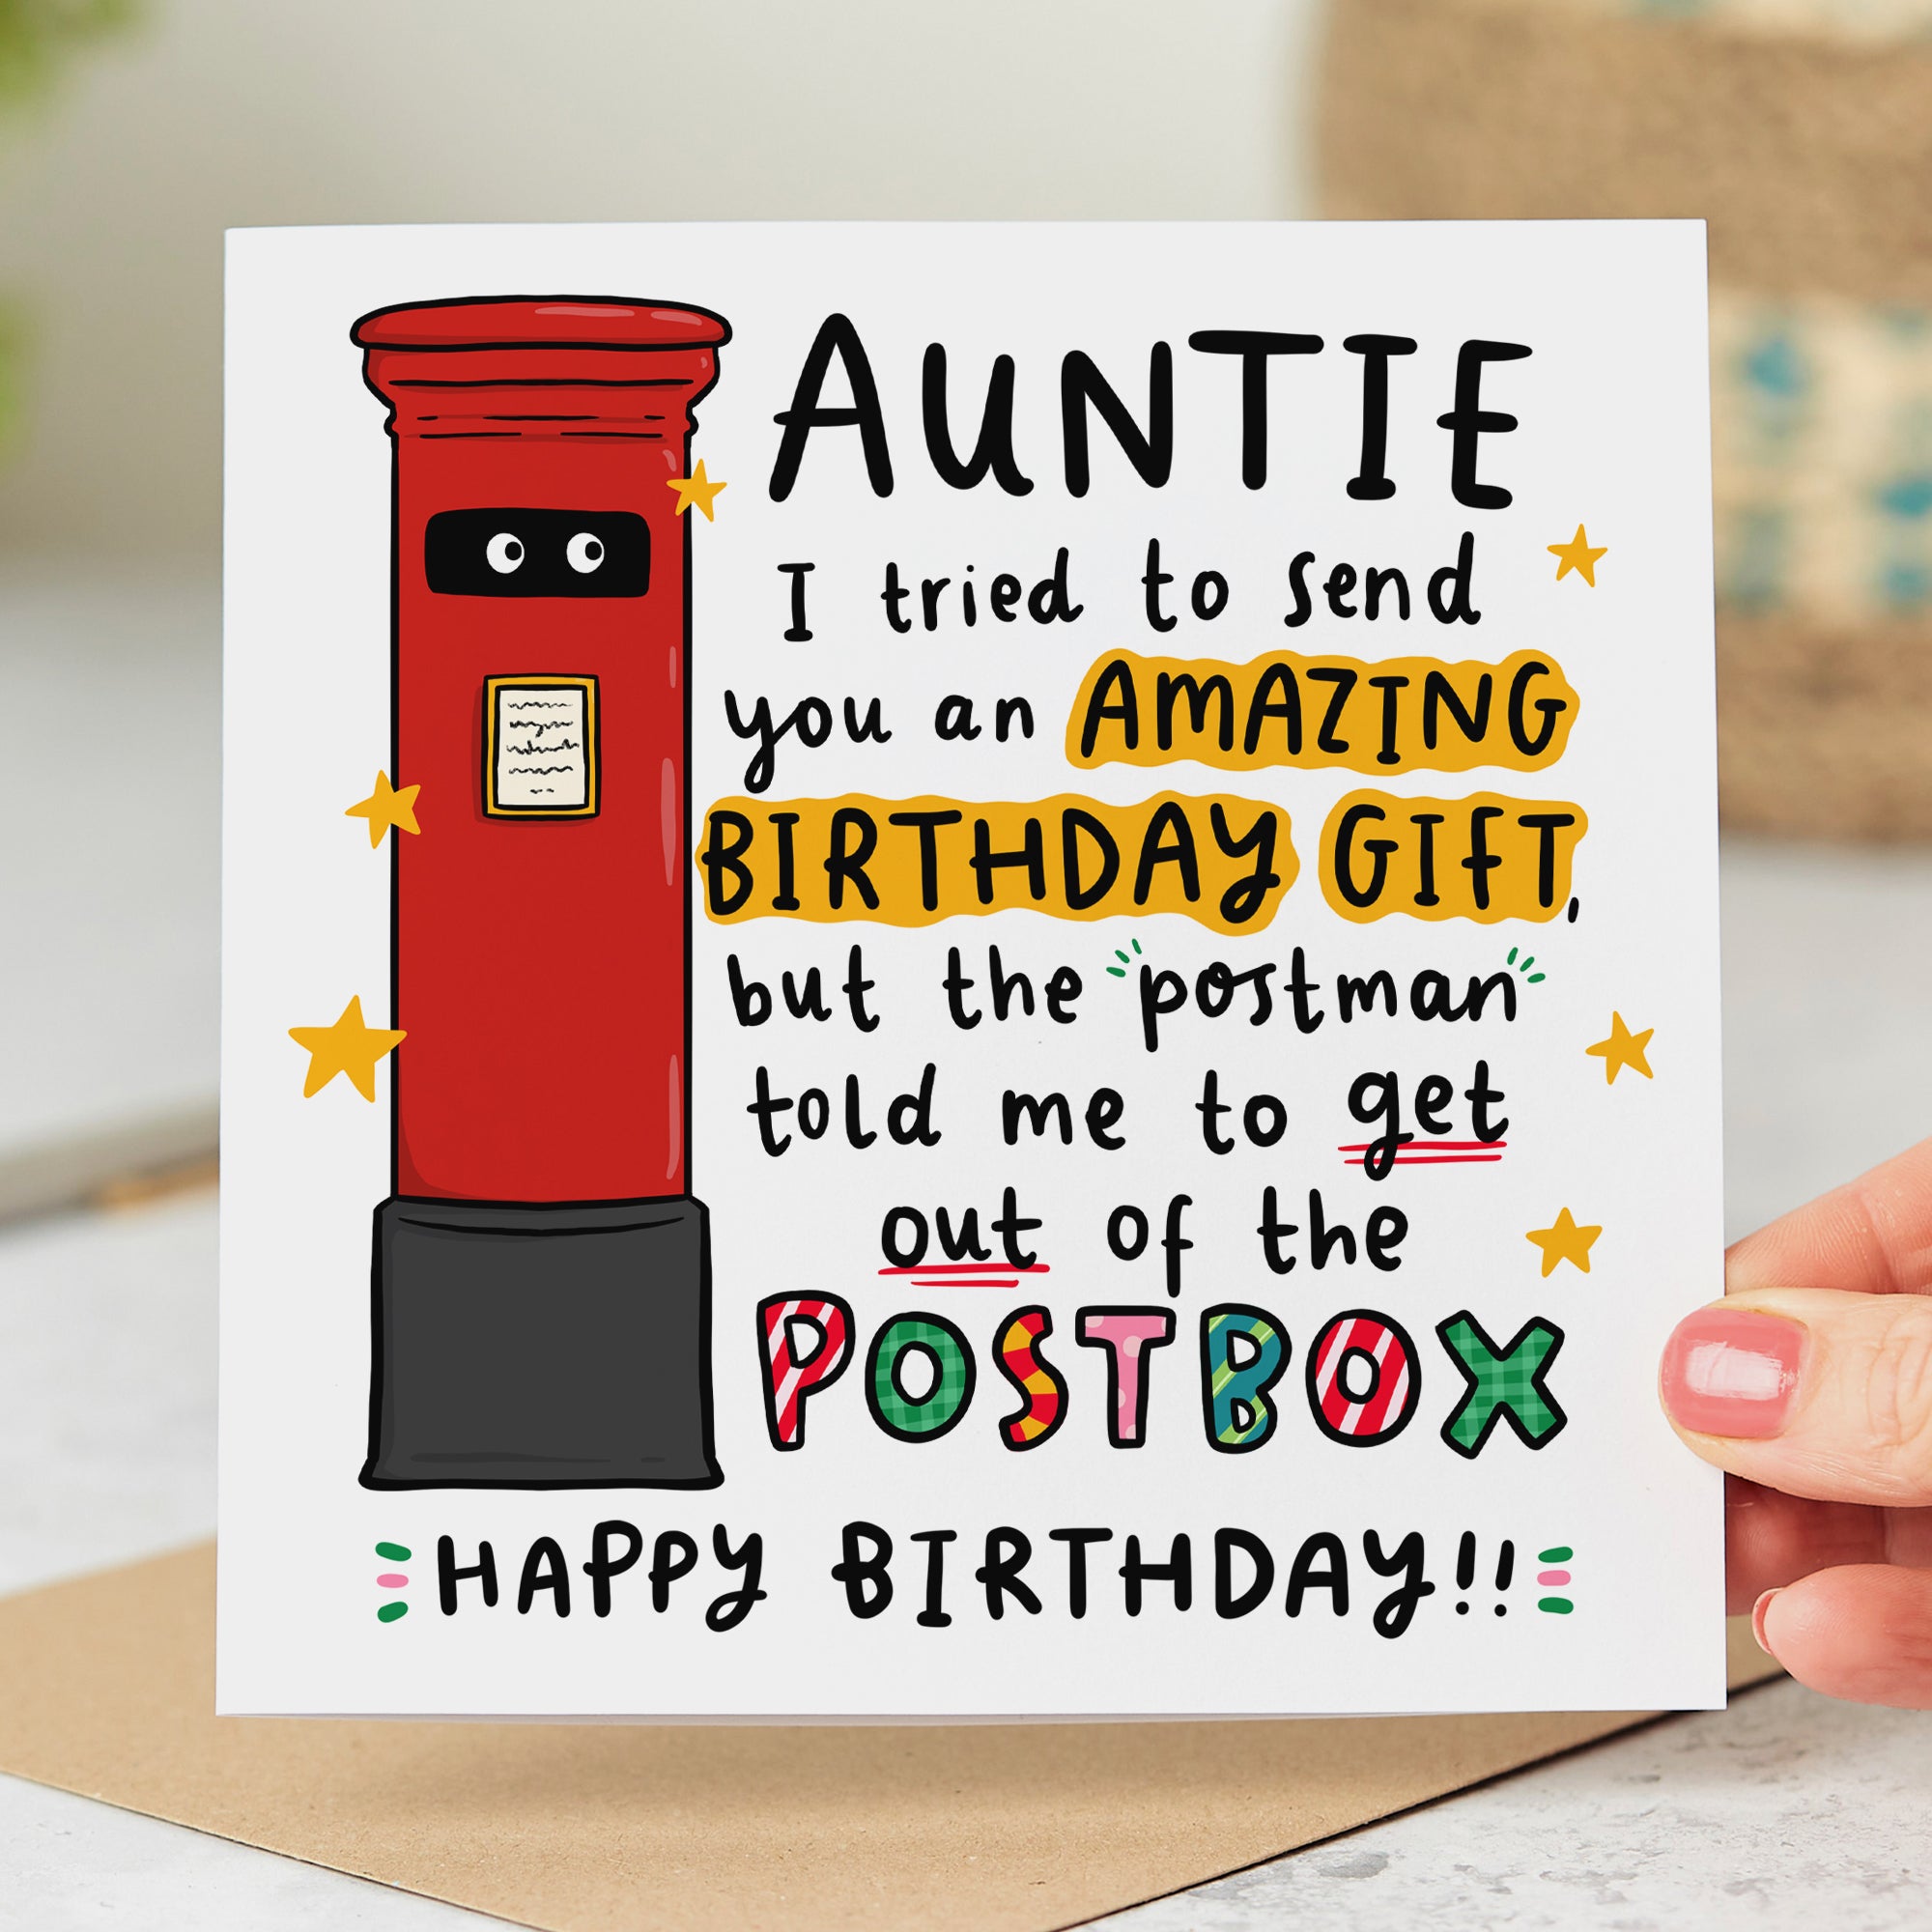 AUNTIE
I tried to send
you an AMAZING
BIRTHDAY GIFT,
but the "postman"
told me to get
out of the
POSTBOX
HAPPY BIRTHDAY!!